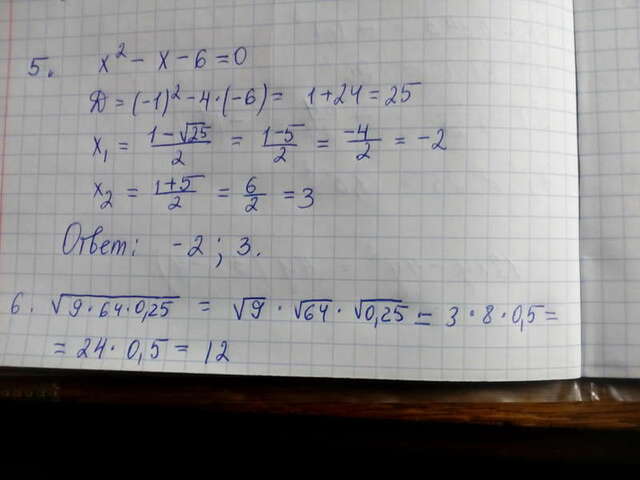 5. x² - x - 6 = 0
Д = (-1)² - 4·(-6) = 1 + 24 = 25
x₁ = (1 - √25)/2 = (1 - 5)/2 = -4/2 = -2
x₂ = (1 + 5)/2 = 6/2 = 3
Ответ: -2; 3.
6. √(9·64·0,25) = √9 · √64 · √0,25 = 3·8·0,5 =
= 24·0,5 = 12